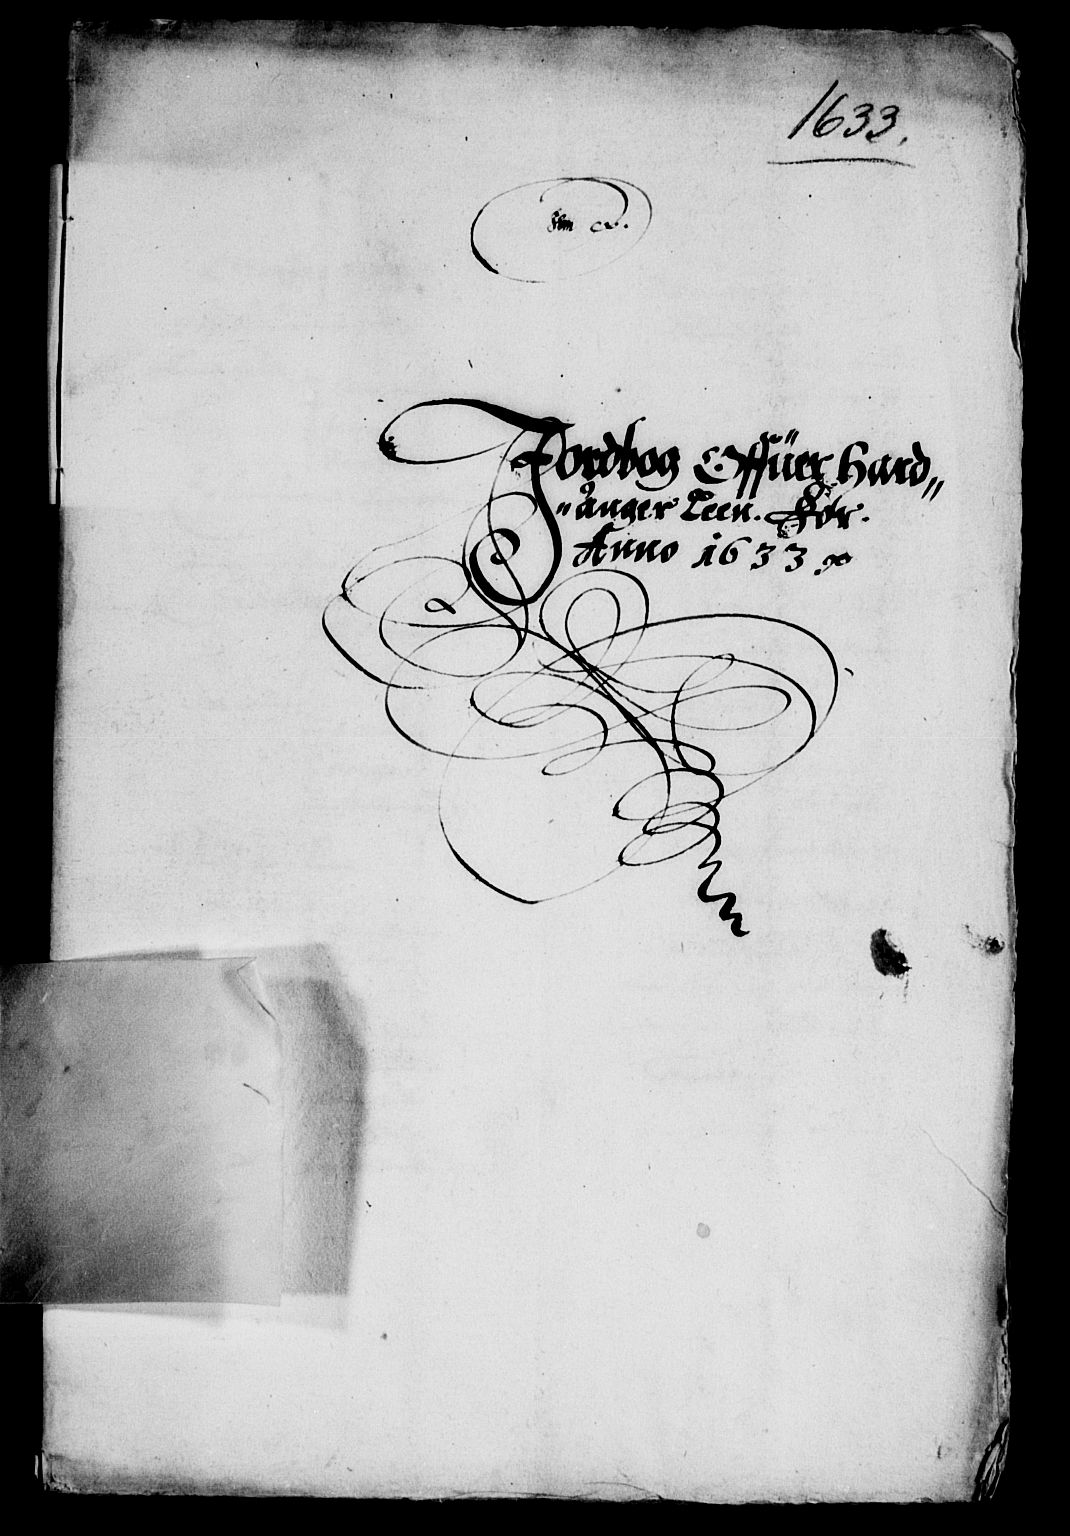 1633.
Jordbog Offüer Hard„
„ånger Leen. För.
Anno 1633